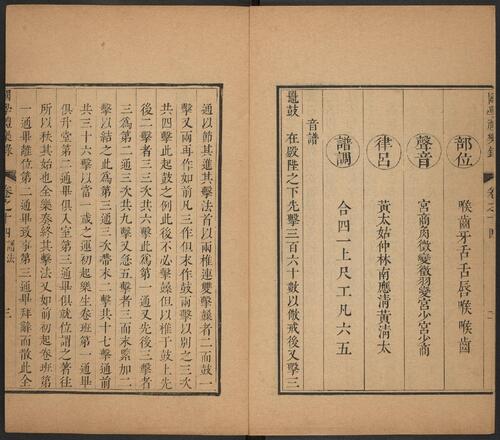 國學禮樂錄 卷之十四
部位 喉齒牙舌舌唇喉喉齒
聲音 宮商角徵變徵羽變宮少宮少商
律呂 黃太姑仲林南應清黃清太
譜調 合四一上尺工凡六五
音譜
鼉鼓 在殿陛之下先擊三百六十數以儆戒後又擊三
通以節其進其擊法首以兩椎連雙擊者二而鼓一
擊又兩再作如前凡三作但末作鼓兩擊以別之三次
共四擊此起鼓之例此後不必擊但以椎于鼓上先
後二擊者三三次共六擊此為第一通又先後三擊者
三為第二通三次共九擊又急五擊者三而末緊加二
擊以結之此為第三通三次帶末二擊共十七擊通前
共三十六擊以當一歲之運初起樂生卷班第一通畢
俱升堂第二通畢俱入室第三通畢俱就位謂之著往
所以秋其始也全樂奏終其擊法又如前初起卷班第
一通畢離位第二通畢致事第三通畢拜辭而散此全
國學禮樂錄 卷之十四 譜法 三